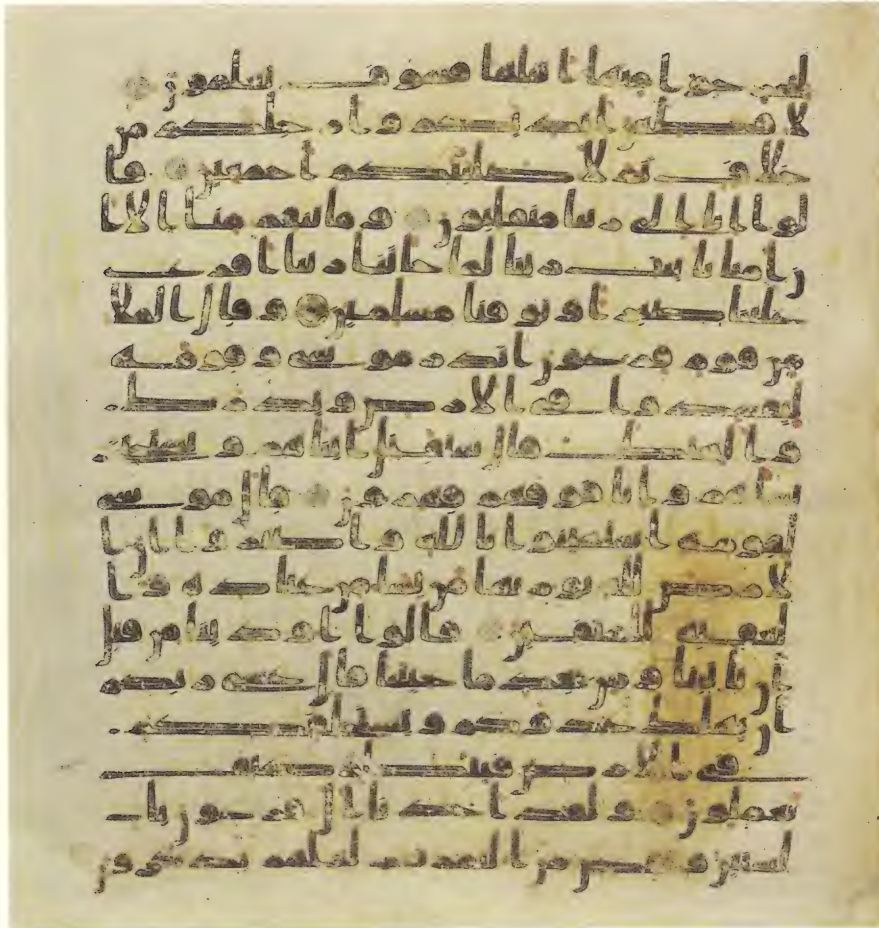 لتخرجوا منها اهلها فسوف تعلمون
لاقطعن ايديكم وارجلكم من
خلاف ثم لاصلبنكم اجمعين قا
لوا انا الى ربنا منقلبون وما تنقم منا الا ا
ن امنا بايت ربنا لما جاتنا ربنا افرغ
علينا صبرا وتوفنا مسلمين وقال الملا
من قوم فرعون اتذر موسى وقومه
ليفسدوا في الارض ويذرك
والهتك قال سنقتل ابناهم ونستحى
نساهم وانا فوقهم قهرون قال موسى
لقومه استعينوا بالله واصبروا ان ا
لارض لله يورثها من يشا من عباده وا
لعقبة للمتقين قالوا اوذينا من قبل
ان تاتينا ومن بعد ما جيتنا قال عسى ربكم
ان يهلك عدوكم ويستخلفكم
في الارض فينظر كيف
تعملون ولقد اخذنا ال فرعون با
لسنين ونقص من الثمرت لعلهم يذكرون